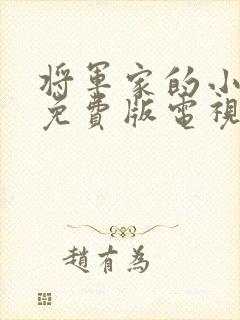 將軍家的小
免費版電視
趙有為